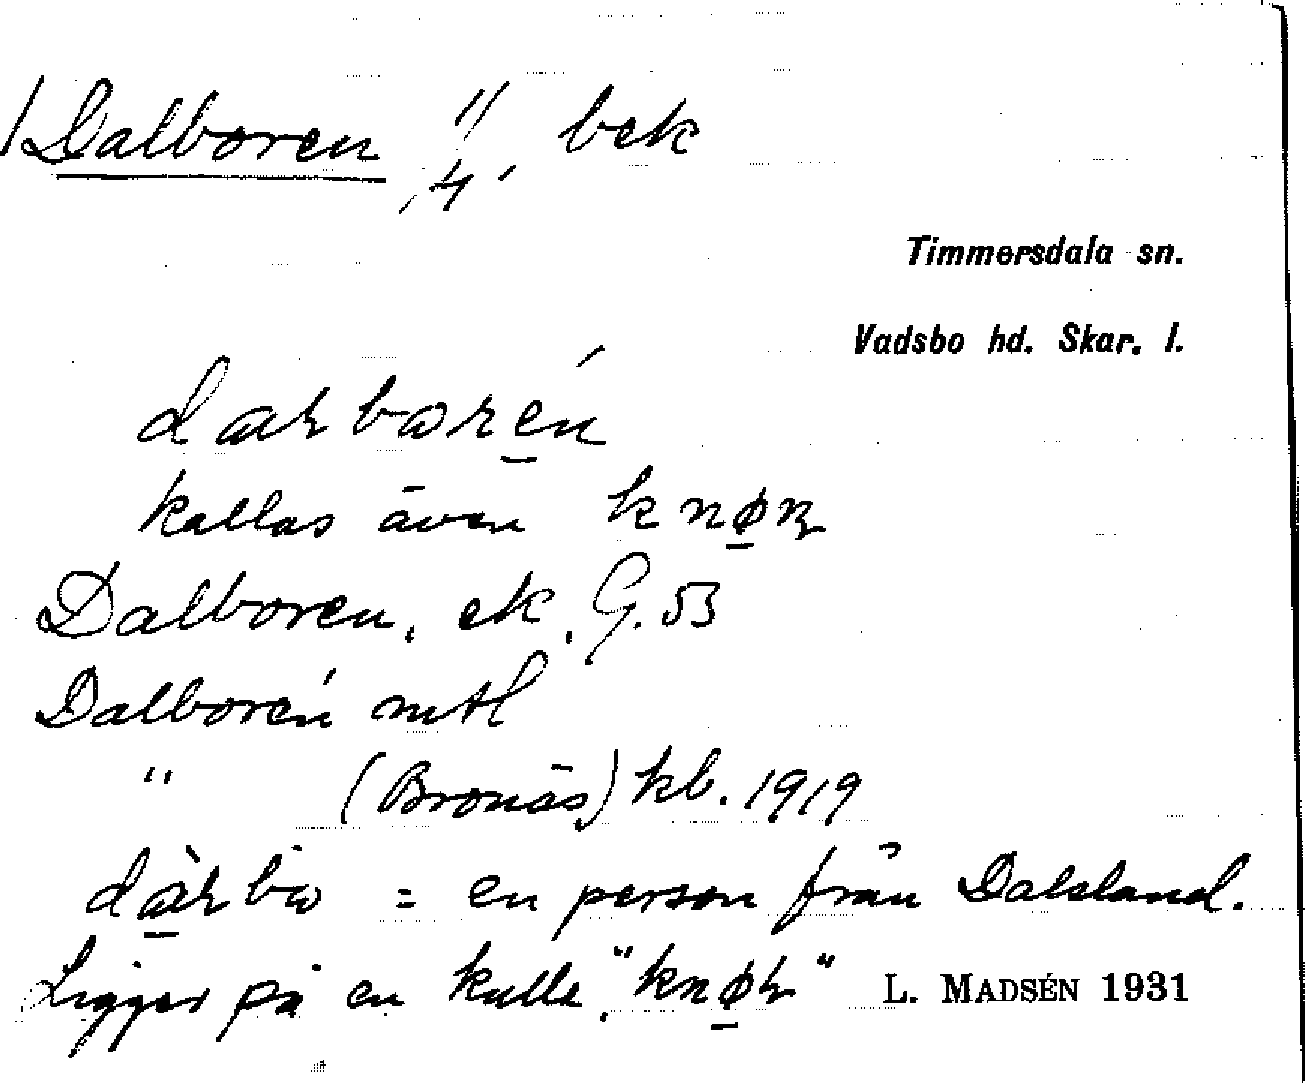 Dalboren 4, bek
Timmersdala sn.
Vadsbo hd. Skar. l.
kallas även
Dalboren, ek, G. 53
Dalborén mtl
" (Bronäs) kb. 1919
= en person från Dalsland.
Ligger på en kulle,
L. MADSÉN 1931